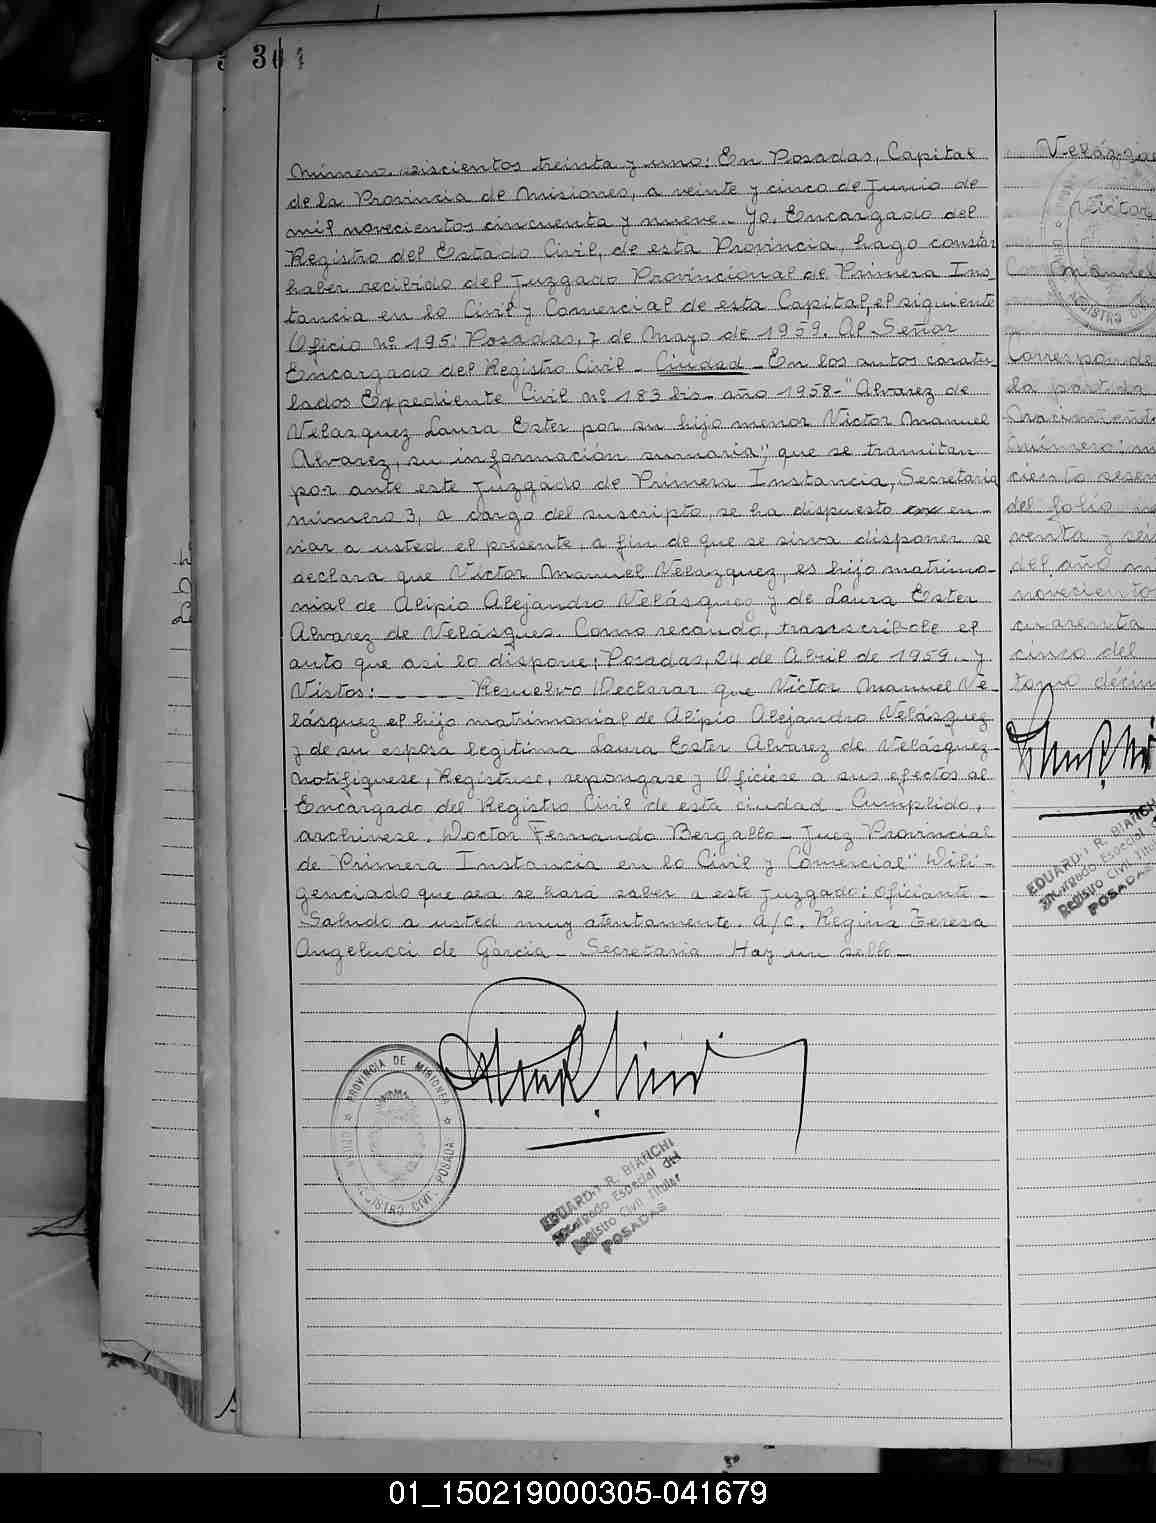 304
Número seiscientos treinta y uno: En Posadas, Capital
de la Provincia de Misiones, a veinte y cinco de Junio de
mil novecientos cincuenta y nueve.- Yo, Encargado del
Registro del Estado Civil, de esta Provincia, hago constar
haber recibido del Juzgado Provincional de Primera Ins
tancia en lo Civil y Comercial de esta Capital, el siguiente
Oficio nº 195: Posadas, 7 de Mayo de 1959. Al Señor
Encargado del Registro Civil - Ciudad - En los autos caratu-
lados Expediente Civil nº 183 bis - año 1958 - "Alvarez de
Velazquez Laura Ester por su hijo menor Victor Manuel
Alvarez, su información sumaria", que se tramitan
por ante este Juzgado de Primera Instancia, Secretaria
número 3, a cargo del suscripto, se ha dispuesto en-
viar a usted el presente, a fin de que se sirva disponer se
declara que Victor Manuel Velazquez, es hijo matrimo-
nial de Alipio Alejandro Velásquez y de Laura Ester
Alvarez de Velásques. Como recaudo, transcribole el
auto que asi lo dispone; Posadas, 24 de Abril de 1959.- y
Vistos: - - - - - Resuelvo Declarar que Victor Manuel Ve-
lásquez el hijo matrimonial de Alipio Alejandro Velásquez
y de su esposa legitima Laura Ester Alvarez de Velásquez-
notifiquese, Registrese, repongase y Oficiese a sus efectos al
Encargado del Registro Civil de esta ciudad - Cumplido,
archivese. Doctor Fernando Bergallo - Juez Provincial
de Primera Instancia en lo Civil y Comercial" Dili-
genciado que sea se hará saber a este Juzgado: Oficiante -
Saludo a usted muy atentamente. a/c. Regina Teresa
Angelucci de Garcia - Secretaria - Hay un sello -
PROVINCIA DE MISIONES
REGISTRO CIVIL POSADAS
EDUARDO R. BIANCHI
Encargado Especial del
Registro Civil Titular
POSADAS
Velázque
Victor
Manuel
Corresponde
la partida
nacimiento
número: mi
ciento sesen
del folio no
venta y seis
del año mi
novecientos
cuarenta
cinco del
tomo décim
EDUARDO R. BIANCHI
Encargado Especial del
Registro Civil Titul
POSADAS
01_150219000305-041679